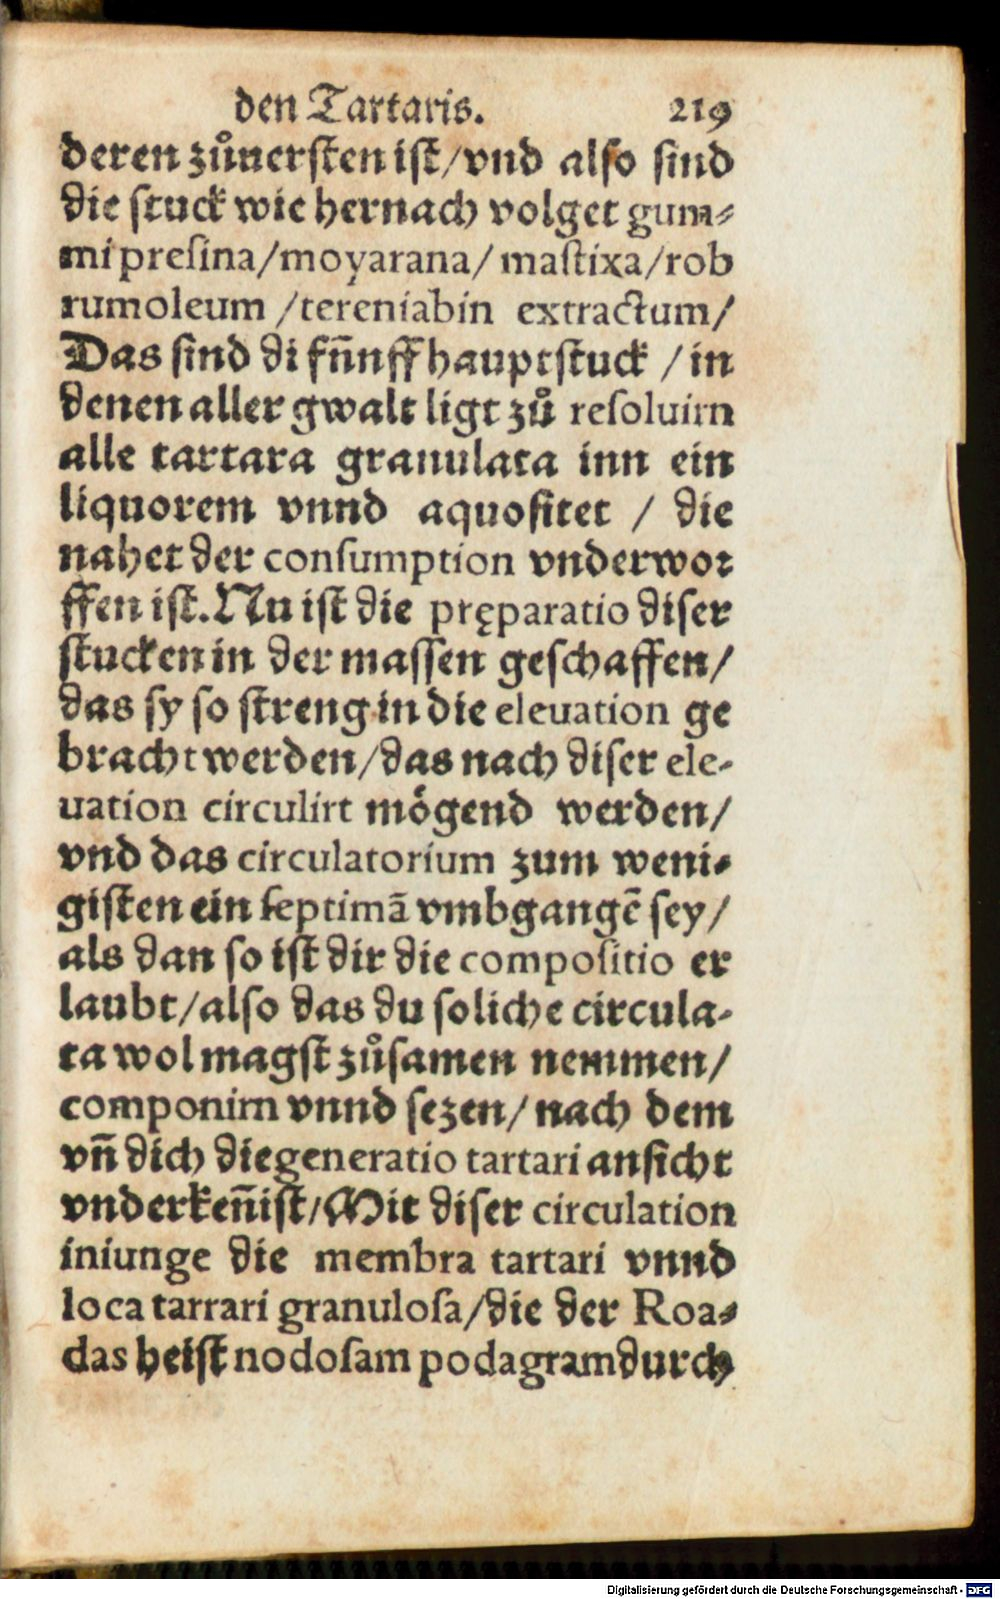 den Tartaris. 219
deren zůuersten ist/vnd also sind
die stuck wie hernach volget gum⸗
mi presina/moyarana/ mastixa/rob
rumoleum /tereniabin extractum/
Das sind di fũnff hauptstuck /in
denen aller gwalt ligt zů resoluirn
alle tartara granulata inn ein
liquorem vnnd aquositet / die
nahet der consumption vnderwor
ffen ist. Nu ist die pręparatio diser
stucken in der massen geschaffen/
das sy so streng in die eleuation ge
bracht werden/das nach diser ele⸗
uation circulirt mögend werden/
vnd das circulatorium zum weni⸗
gisten ein septimā vmbgangē sey/
als dan so ist dir die compositio er
laubt/also das du soliche circula⸗
ta wol magst zůsamen nemmen/
componirn vnnd sezen/nach dem
vñ dich die generatio tartari ansicht
vnd erkeñist/Mit diser circulation
iniunge die membra tartari vnnd
loca tarrari granulosa/die der Roa⸗
das heist nodosam podagram durch
Digitalisierung gefördert durch die Deutsche Forschungsgemeinschaft - DFG